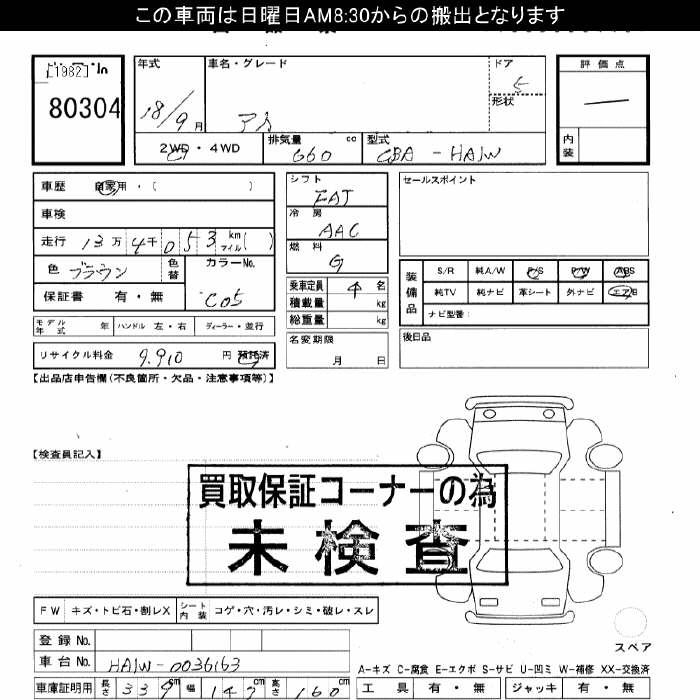 この車両は日曜日AM8:30からの搬出となります
[1982]
80304
年式
18/9月
車名・グレード
アイ
ドア
5
形状
評価点
—
内装
2WD・4WD
排気量 660 cc
型式 CBA-HA1W
車歴 自家用・( )
車検
走行 13万4千053 km マイル( )
色 ブラウン 色替
カラーNo. C05
保証書 有・無
モデル年式 年 ハンドル 左・右 ディーラー・並行
リサイクル料金 9.910 円 預託済
シフト FAT
冷房 AAC
燃料 G
乗車定員 4 名
積載量 kg
総重量 kg
名変期限 月 日
セールスポイント
装備品
S/R 純A/W P/S P/W ABS
純TV 純ナビ 革シート 外ナビ エアB
ナビ型番:
後日品
【出品店申告欄(不良箇所・欠品・注意事項等)】
【検査員記入】
買取保証コーナーの為
未検査
FW キズ・トビ石・割レX シート内装 コゲ・穴・汚レ・シミ・破レ・スレ
登録No.
車台No. HA1W-0036163
車庫証明用 長さ 339cm 幅 147cm 高さ 160cm
スペア
A-キズ C-腐食 E-エクボ S-サビ U-凹ミ W-補修 XX-交換済
工具 有・無 ジャッキ 有・無